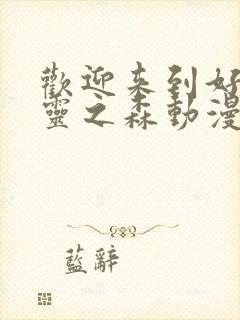 歡迎来到好
靈之森動漫
藍辭